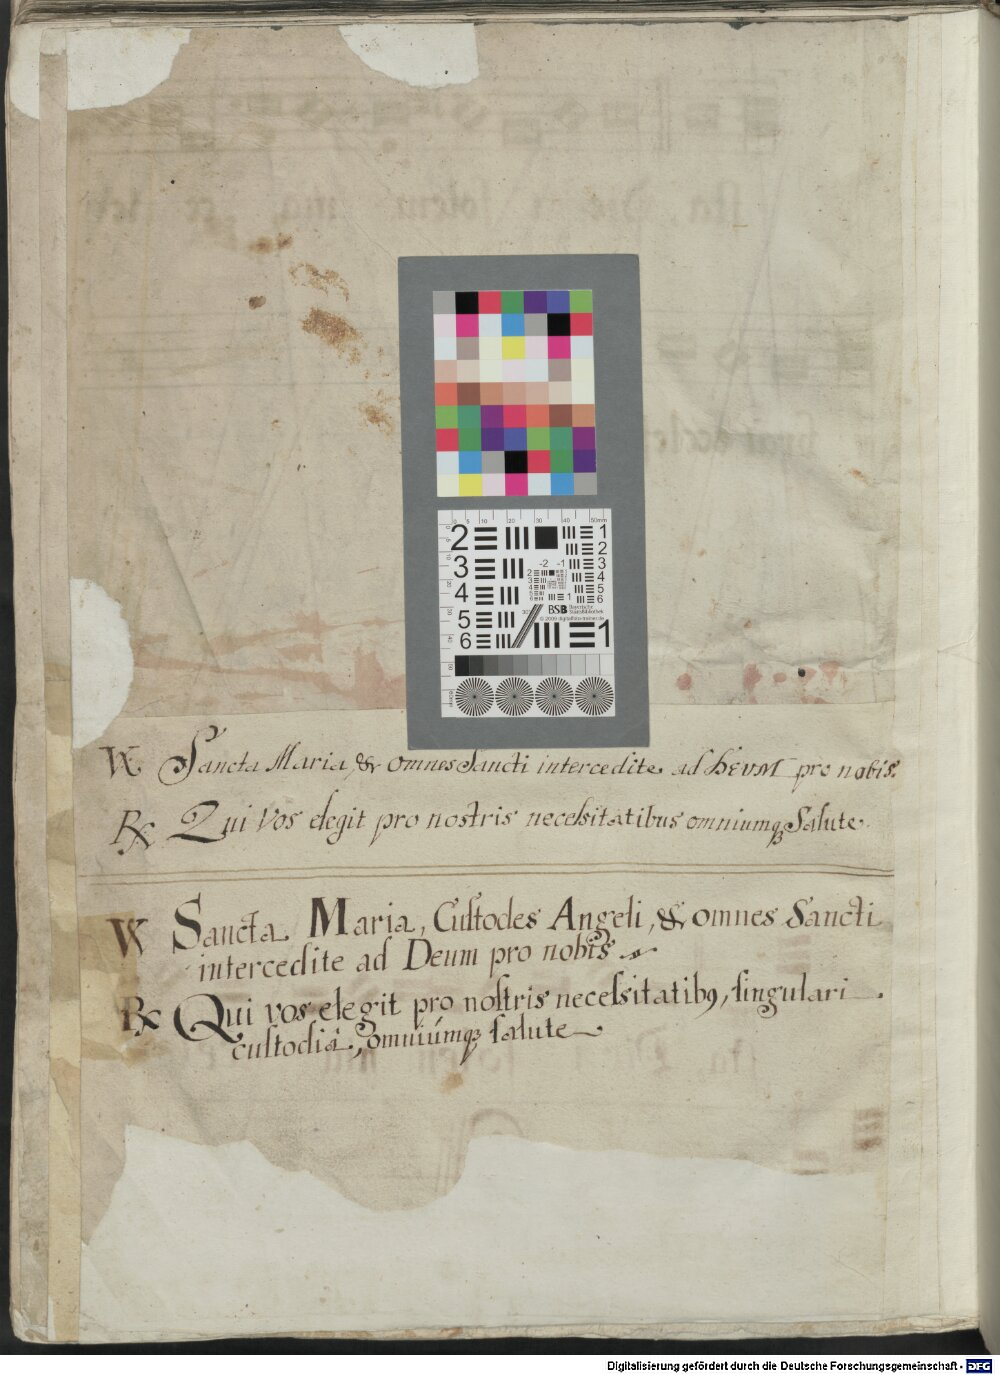 ℣. Sancta Maria, & omnes Sancti intercedite ad DEVM pro nobis.
℟ Qui vos elegit pro nostris necessitatibus omniumq; Salute.
℣ Sancta Maria, Custodes Angeli, & omnes Sancti
intercedite ad Deum pro nobis
℟ Qui vos elegit pro nostris necessitatib9, singulari
custodiâ, omniúmq; salute
0 5 10 20 30 40 50mm
2 1
2
3 3
4 4
5 5
6 6
-2 -1
1
BSB Bayerische StaatsBibliothek
Digitalisierung gefördert durch die Deutsche Forschungsgemeinschaft - DFG